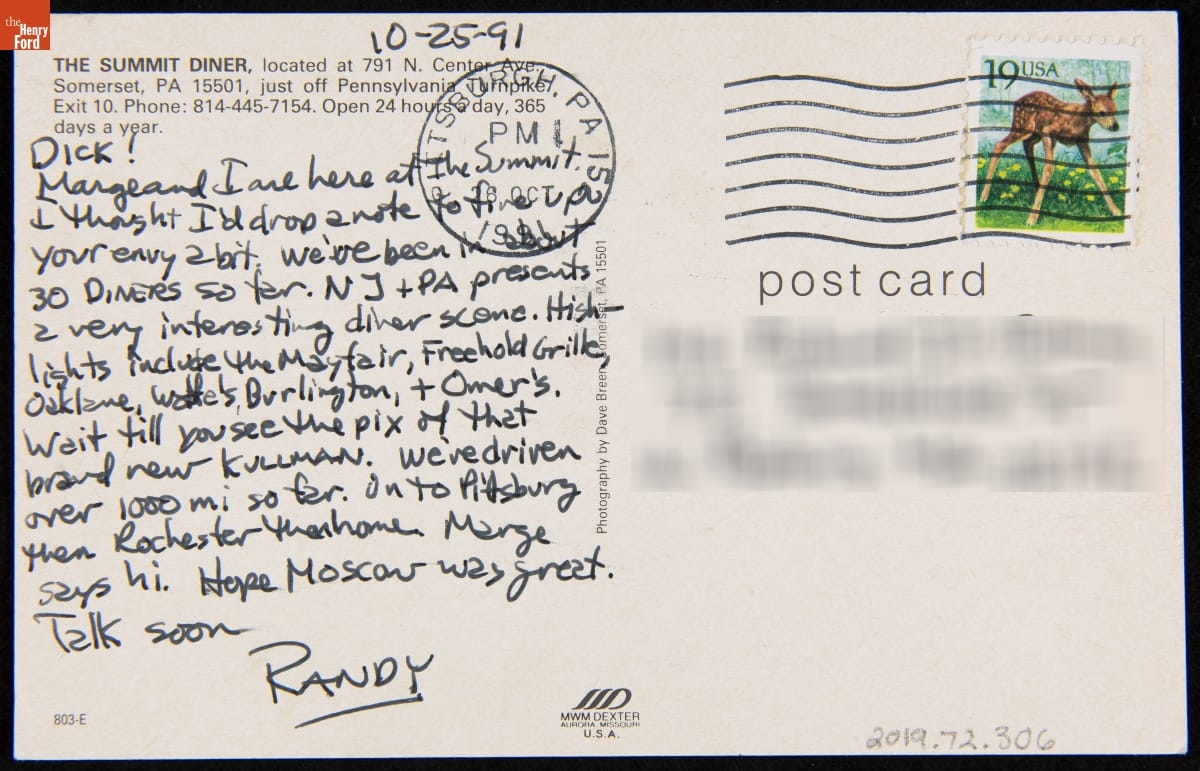 the
Henry
Ford
10-25-91
THE SUMMIT DINER, located at 791 N. Center Ave.,
Somerset, PA 15501, just off Pennsylvania Turnpike
Exit 10. Phone: 814-445-7154. Open 24 hours a day, 365
days a year.
PITTSBURGH, PA 152
PM 1
26 OCT
1991
19 USA
DICK!
Marge and I are here at the Summit.
I thought I'd drop a note to fire up
your envy a bit. We've been in about
30 DINERS so far. NJ + PA presents
a very interesting diner scene. High-
lights include the Mayfair, Freehold Grille,
Oaklane, Burlington, + Omer's.
Wait till you see the pix of that
brand new KULLMAN. We've driven
over 1000 mi so far. On to Pittsburg
then Rochester then home. Marge
says hi. Hope Moscow was great.
Talk soon
RANDY
post card
Photography by Dave Breen, Somerset, PA 15501
803-E
MWM DEXTER
AURORA, MISSOURI
U.S.A.
2019.72.306